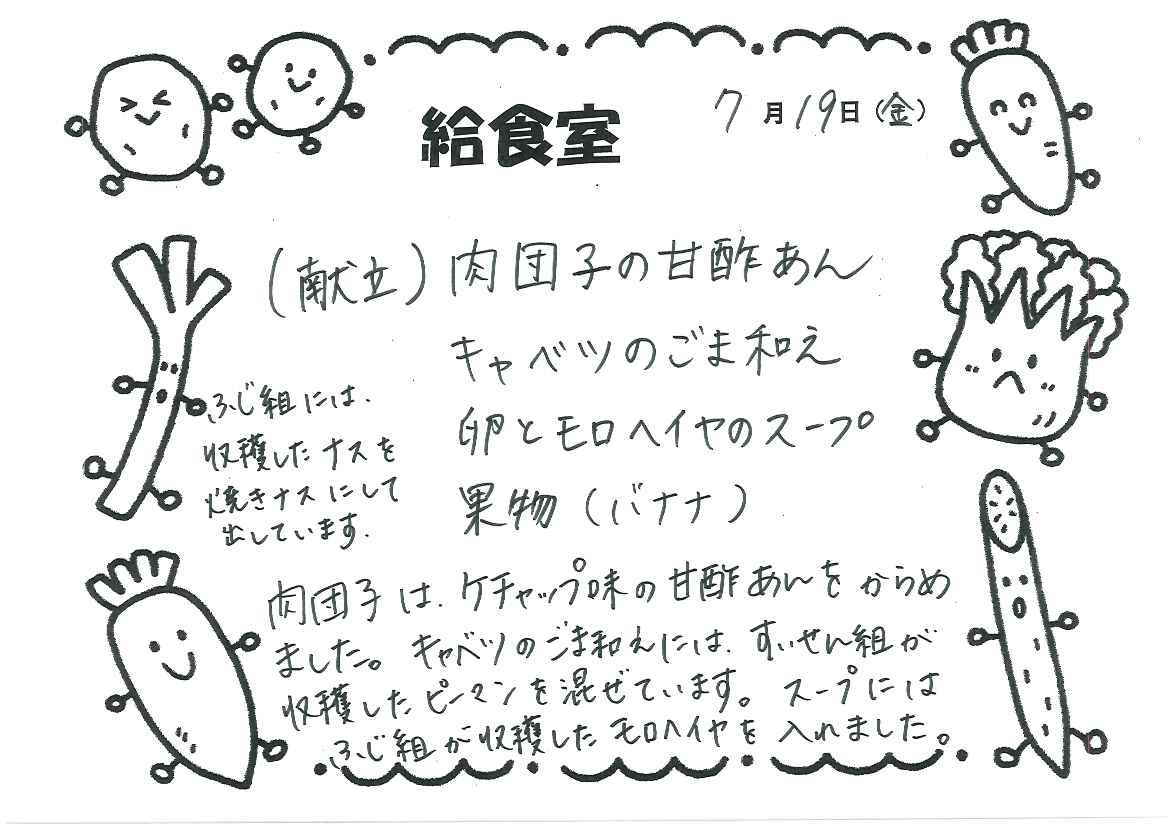 給食室
7月19日(金)
(献立)肉団子の甘酢あん
キャベツのごま和え
卵とモロヘイヤのスープ
果物(バナナ)
ふじ組には、
収穫したナスを
焼きナスにして
出しています。
肉団子は、ケチャップ味の甘酢あんをからめ
ました。キャベツのごま和えには、すいせん組が
収穫したピーマンを混ぜています。スープには
ふじ組が収穫したモロヘイヤを入れました。